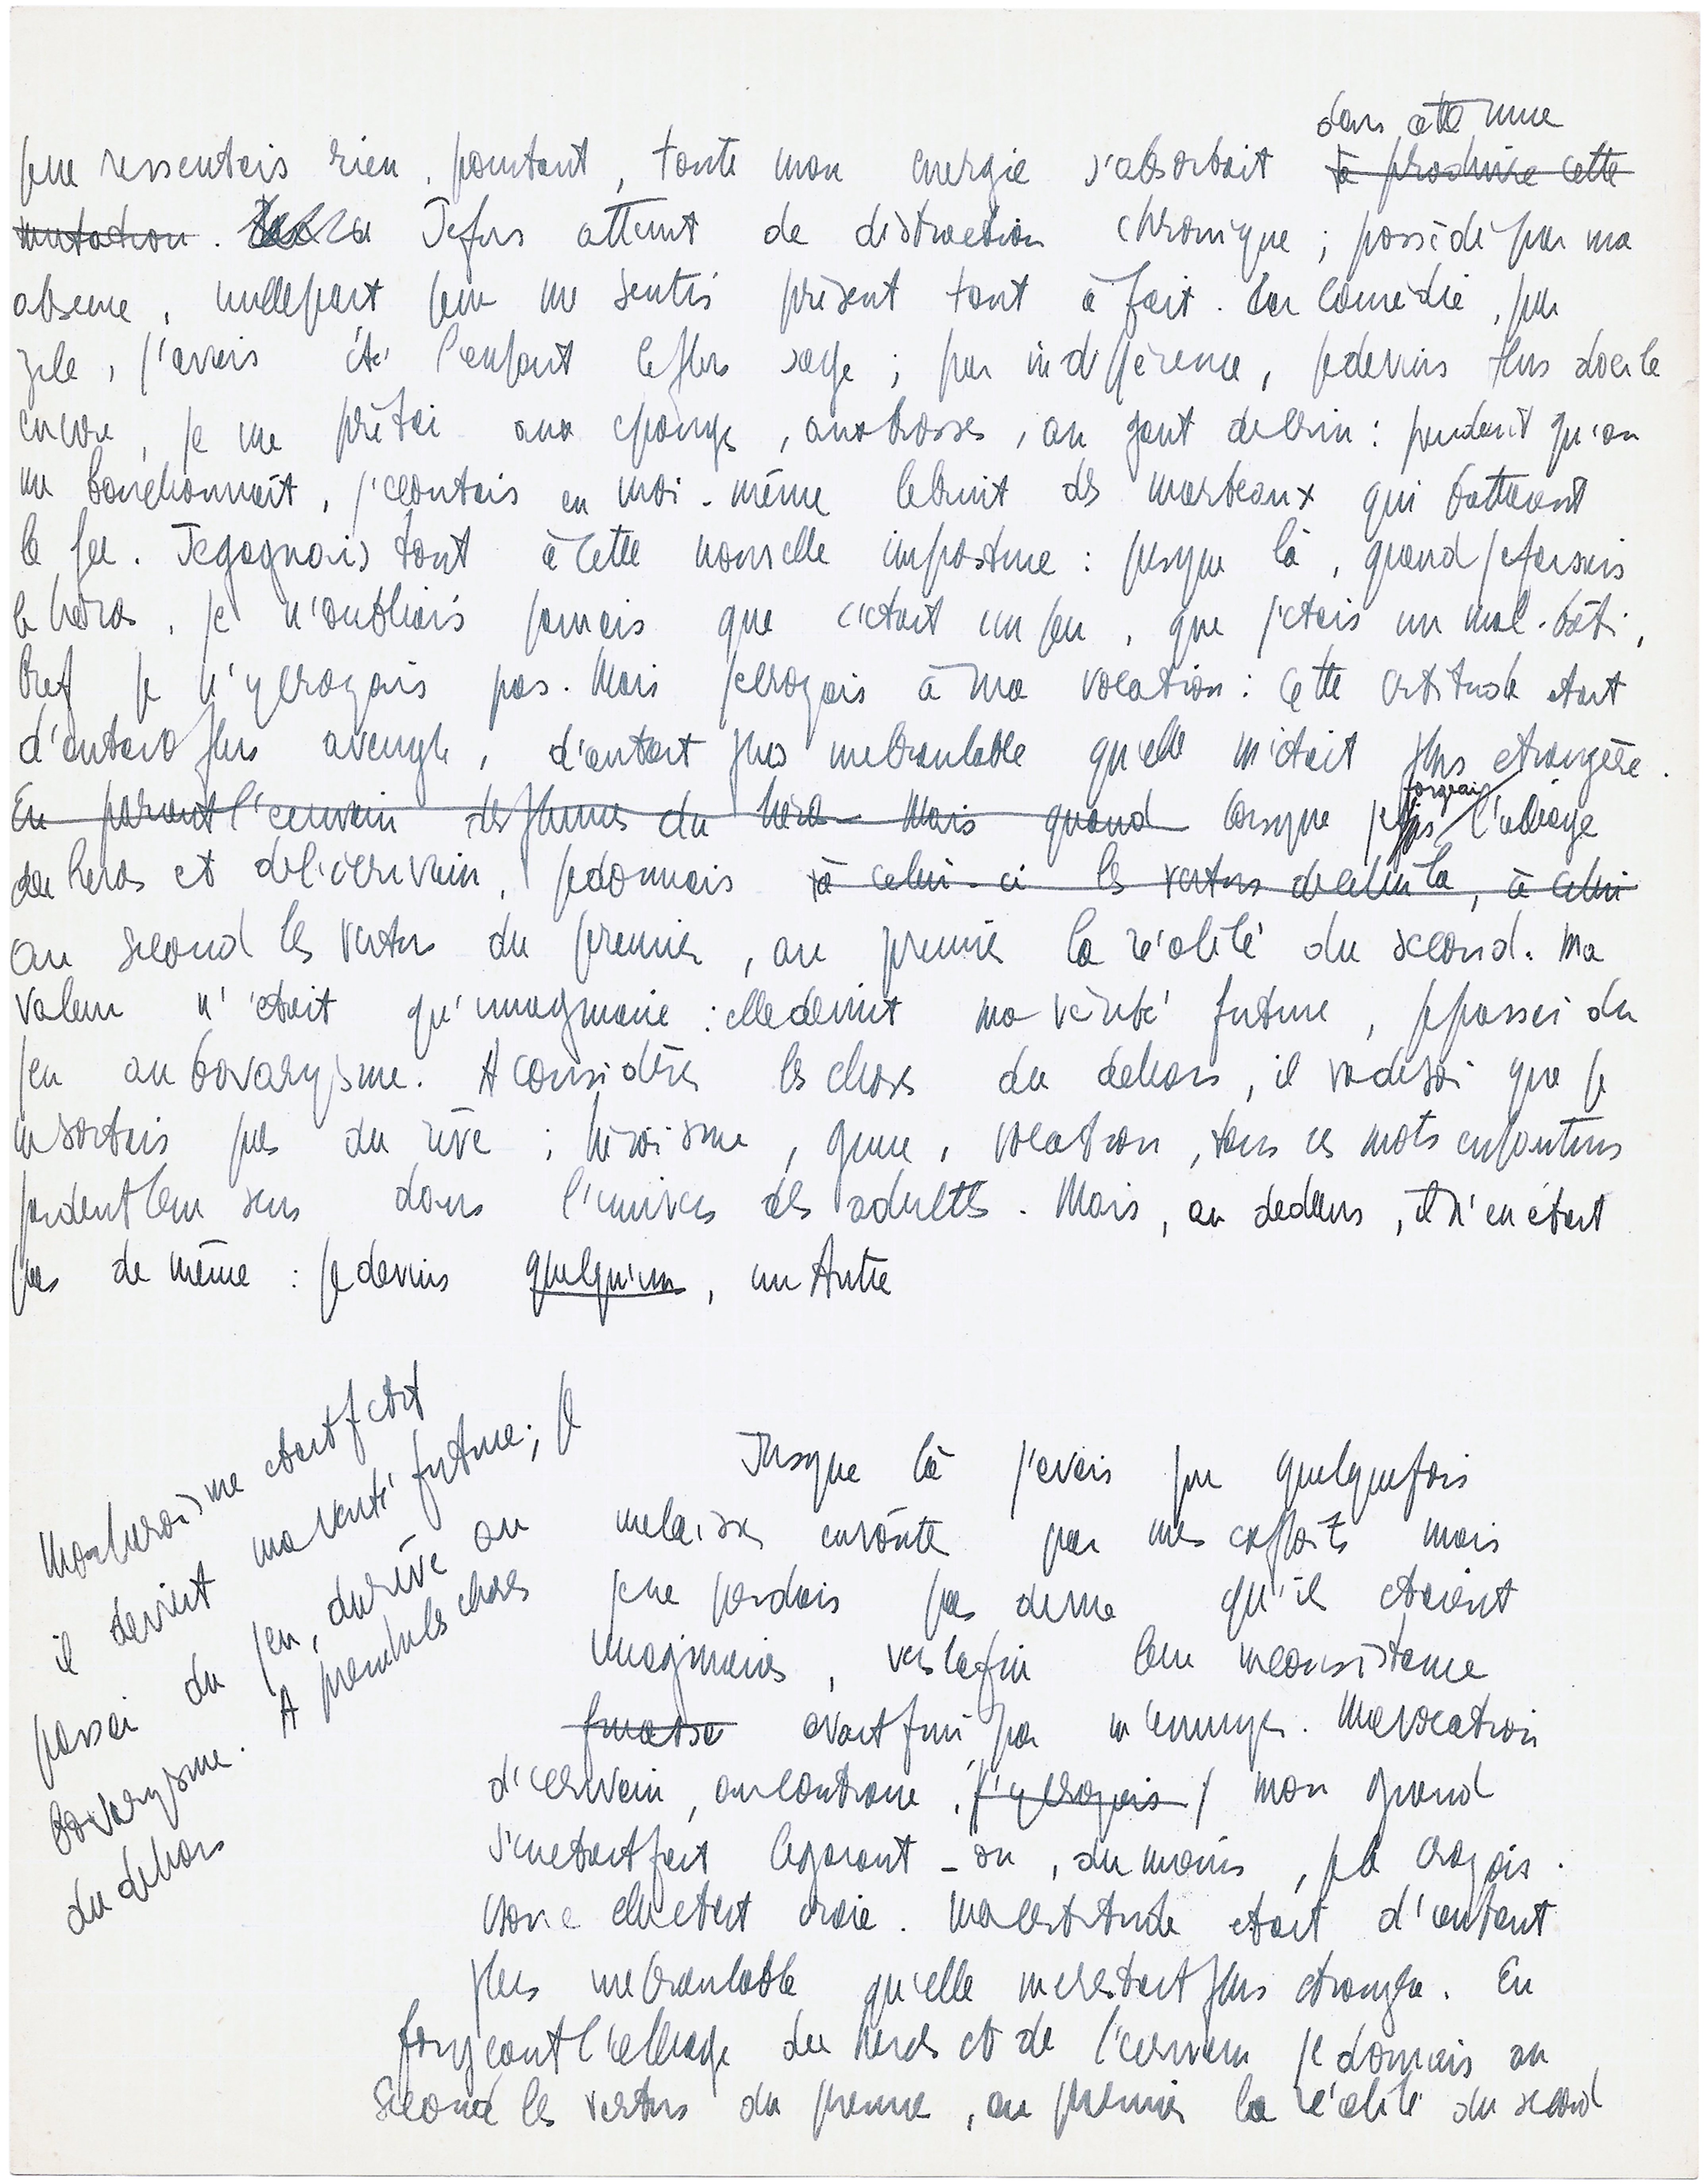 dans cette mue
je ne ressentais rien. pourtant, toute mon energie s'absorbait à produire cette
mutation. Je fus atteint de distraction chronique ; possédé par ma
absence, nulle part je ne me sentis présent tout à fait. Par comédie, par
zèle, j'avais été l'enfant le plus sage ; par indifférence, je devins plus docile
encore, je me prêtai aux éponges, aux brosses, au gant de crin : pendant qu'on
me bouchonnait, j'écoutais en moi-même le bruit des marteaux qui battaient
le fer. Je gagnais tout à cette nouvelle imposture : jusque là, quand je faisais
le héros, je n'oubliais jamais que c'était un jeu, que j'étais un mal-bâti,
bref je n'y croyais pas. Mais je croyais à ma vocation : cette certitude était
d'autant plus aveugle, d'autant plus inébranlable qu'elle m'était plus étrangère.
forgeais
En parant l'écrivain des plumes du héros Mais quand lorsque je fis l'alliage
du héros et de l'écrivain, je donnais à celui-ci les vertus de celui là, à celui
au second les vertus du premier, au premier la réalité du second. Ma
valeur n'était qu'imaginaire : elle devint ma vérité future, je passai du
jeu au bovarysme. A considérer les choses du dehors, il va de soi que je
ne sortais pas du rêve ; héroïsme, génie, vocation, tous ces mots enfantins
perdent leur sens dans l'univers des adultes. Mais, au dedans, il n'en était
pas de même : je devins quelqu'un, un Autre
Mon heroïsme etait fictif
il devint ma vérité future ; je
passai du jeu, du rêve au
bovarysme. A prendre les choses
du dehors
Jusque là j'avais pu quelquefois
me laisser envoûter par mes exploits mais
je ne perdais pas de vue qu'ils étaient
imaginaires, vers la fin leur inconsistance
avait fini par m'ennuyer. Ma vocation
d'écrivain, au contraire, j'y croyais / mon grand
s'en etait fait le garant - ou, du moins, je le croyais.
Donc elle etait vraie. Ma certitude etait d'autant
plus inébranlable qu'elle me restait plus etrangère. En
forgeant l'alliage du heros et de l'ecrivain je donnais au
second les vertus du premier, au premier la réalité du second